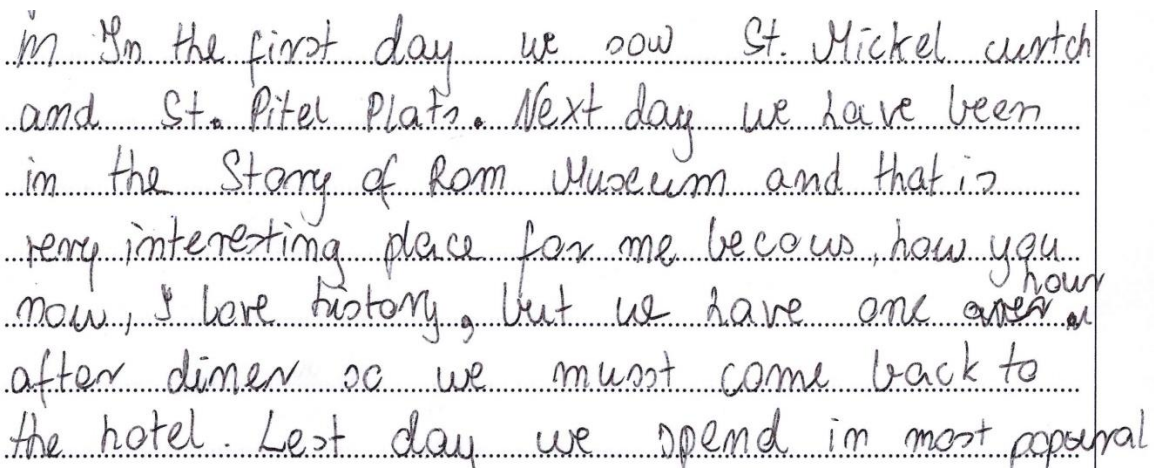 in In the first day we sow St. Mickel curtch
and St. Pitel Plats. Next day we have been
in the Story of Rom Museum and that is
very interesting place for me becous, how you
now, I love history, but we have one hour
after dimer so we musst come back to
the hotel. Lest day we spend in most popural